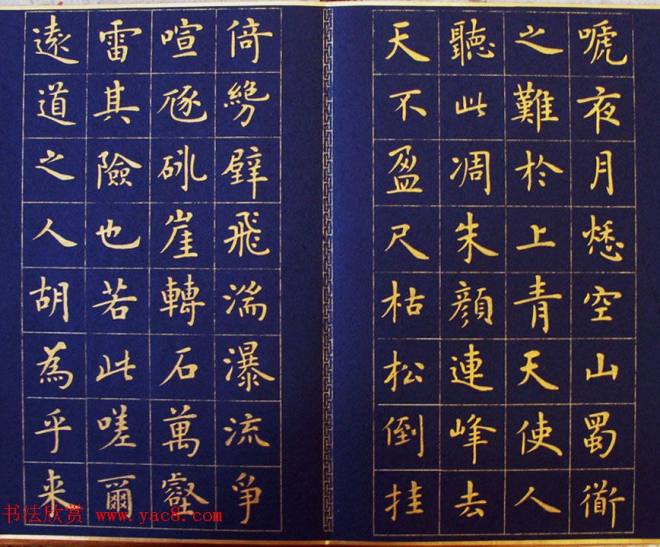 嗁夜月愁空山蜀衜
之難於上青天使人
聽此凋朱顏連峰去
天不盈尺枯松倒挂
倚絕壁飛湍瀑流爭
喧豗砯崖轉石萬壑
雷其險也若此嗟爾
遠道之人胡為乎来
书法欣赏 www.yac8.com